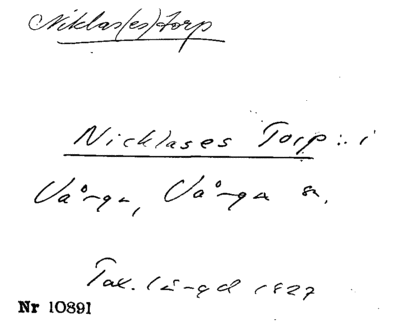 Niklas(es)torp
Nicklases Torp: i
Vånga, Vånga sn.
Tax. längd 1827
Nr 10891